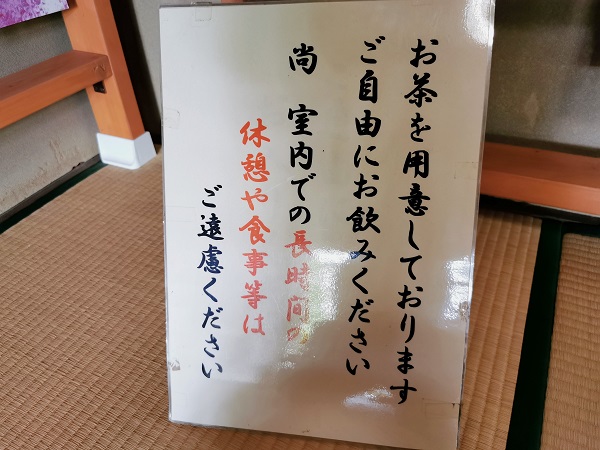 お茶を用意しております
ご自由にお飲みください
尚 室内での長時間の
休憩や食事等は
ご遠慮ください